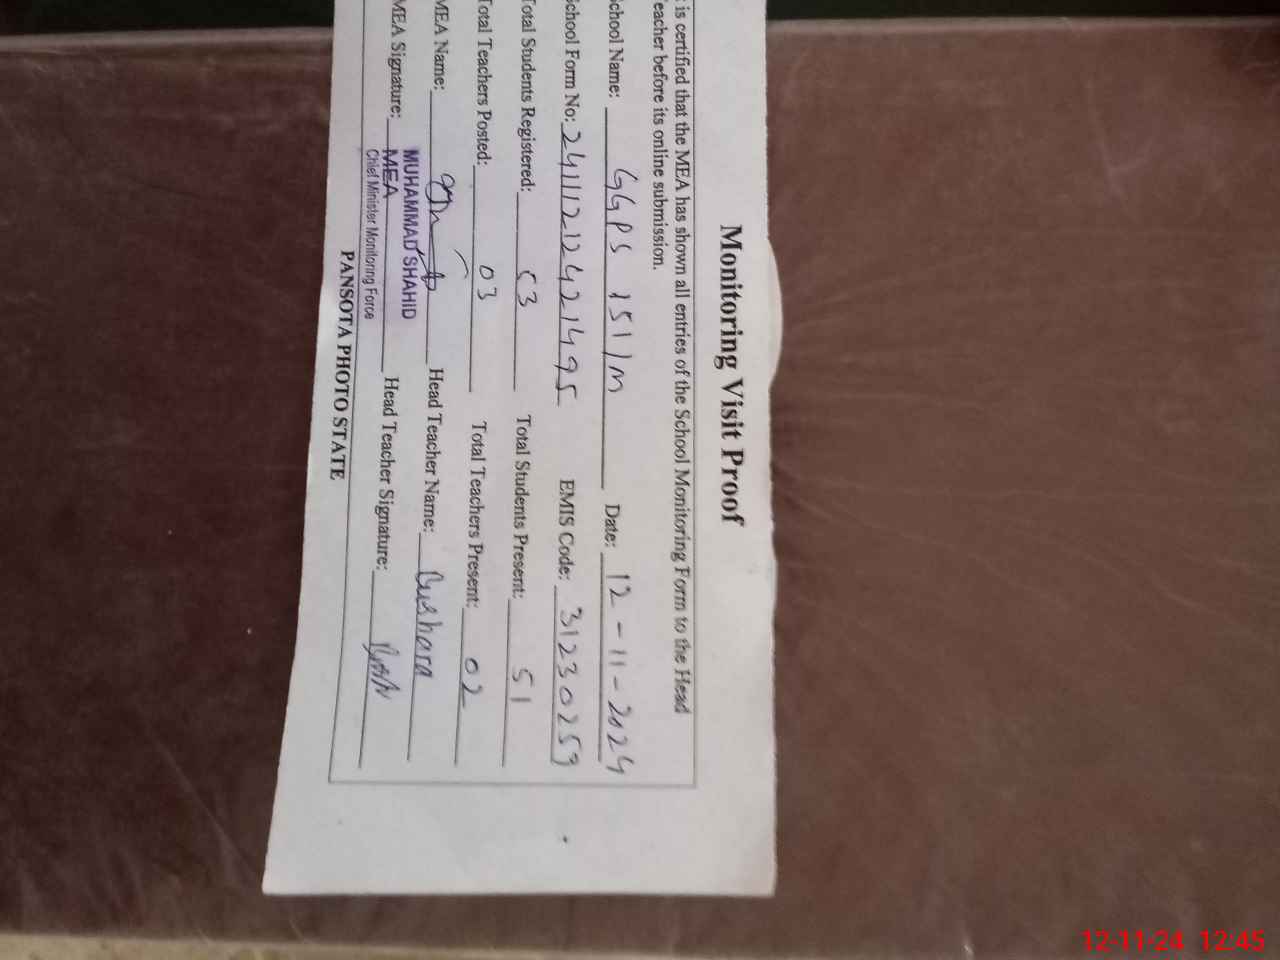 Monitoring Visit Proof
is certified that the MEA has shown all entries of the School Monitoring Form to the Head
eacher before its online submission.
chool Name: GGPS 151/M Date: 12-11-2024
chool Form No: 24111212421495 EMIS Code: 31230259
Total Students Registered: 53 Total Students Present: 51
Total Teachers Posted: 03 Total Teachers Present: 02
MEA Name: Head Teacher Name: Bushara
MUHAMMAD SHAHID
MEA Signature: MEA Head Teacher Signature:
Chief Minister Monitoring Force
PANSOTA PHOTO STATE
12-11-24 12:45